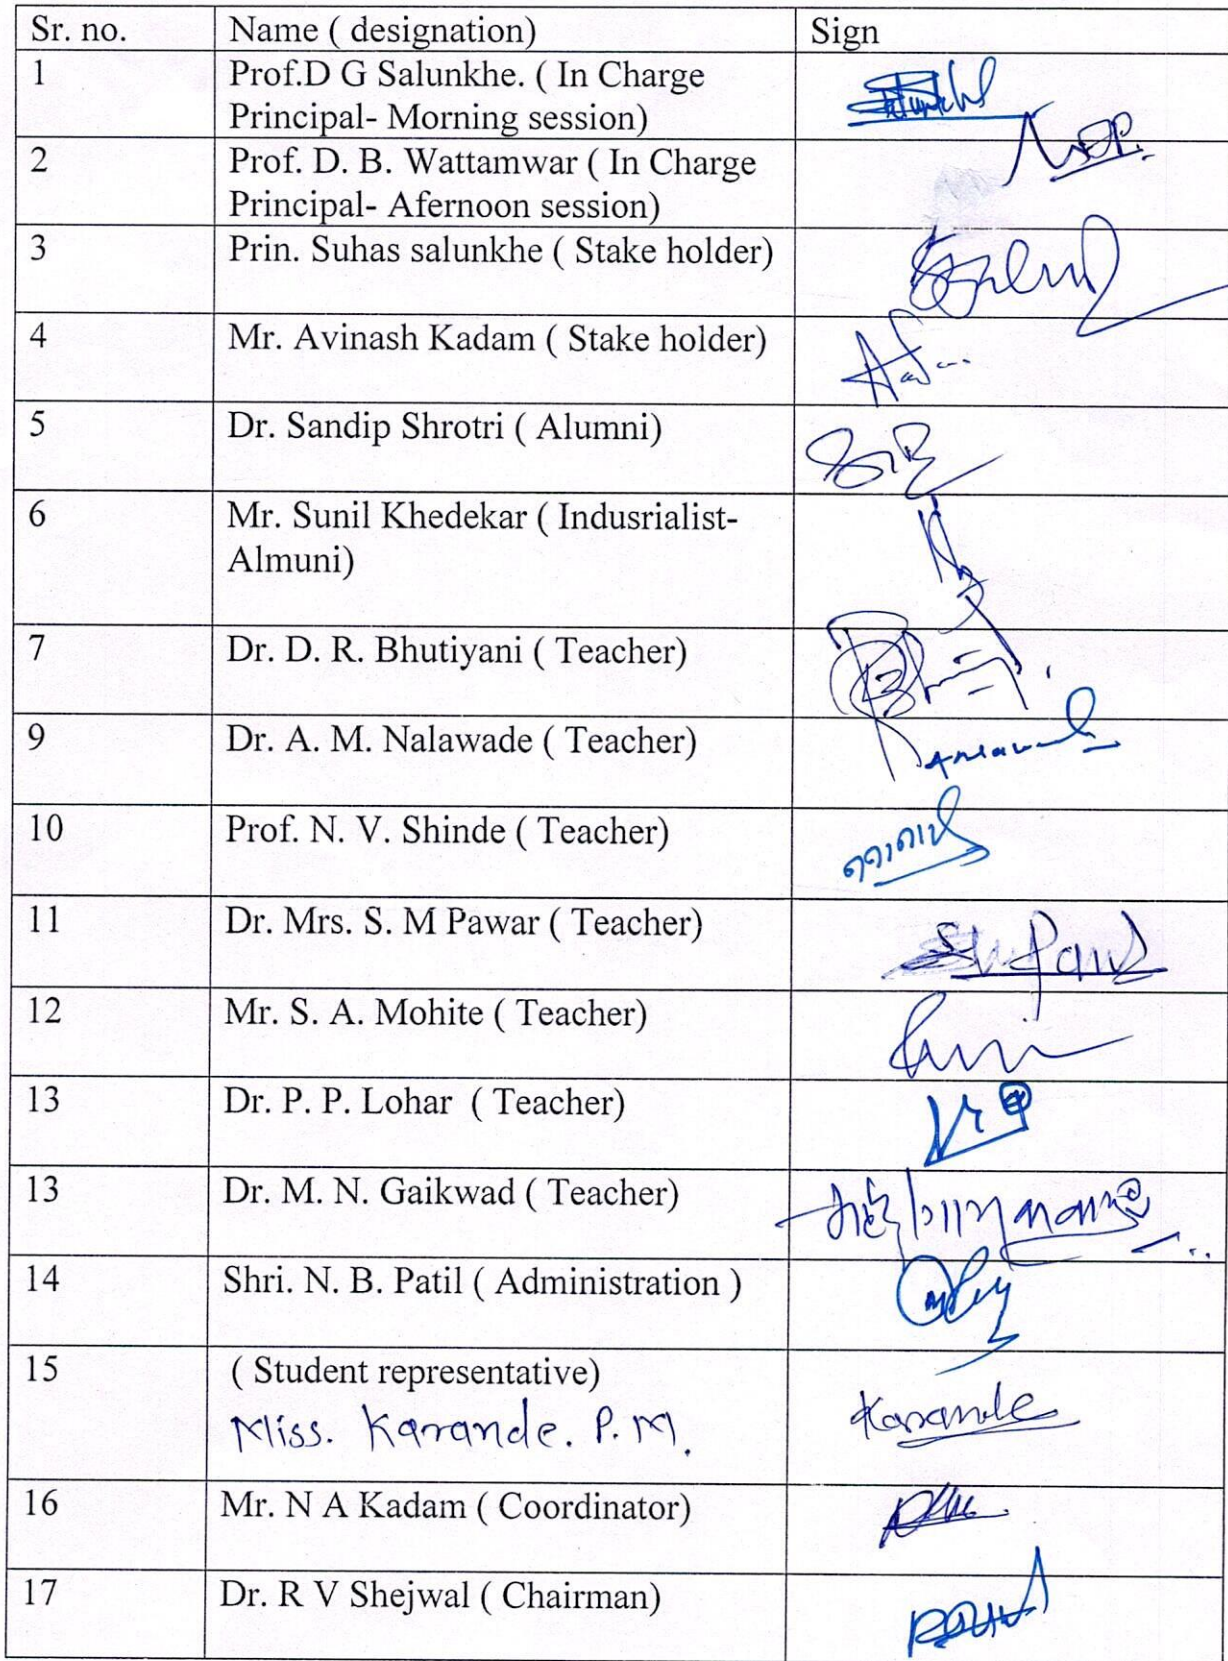 Sr. no. Name ( designation) Sign
1 Prof.D G Salunkhe. ( In Charge
Principal- Morning session)
2 Prof. D. B. Wattamwar ( In Charge
Principal- Afernoon session)
3 Prin. Suhas salunkhe ( Stake holder)
4 Mr. Avinash Kadam ( Stake holder)
5 Dr. Sandip Shrotri ( Alumni)
6 Mr. Sunil Khedekar ( Indusrialist-
Almuni)
7 Dr. D. R. Bhutiyani ( Teacher)
9 Dr. A. M. Nalawade ( Teacher)
10 Prof. N. V. Shinde ( Teacher)
11 Dr. Mrs. S. M Pawar ( Teacher)
12 Mr. S. A. Mohite ( Teacher)
13 Dr. P. P. Lohar ( Teacher)
13 Dr. M. N. Gaikwad ( Teacher)
14 Shri. N. B. Patil ( Administration )
15 ( Student representative)
Miss. Karande. P. M. Karande
16 Mr. N A Kadam ( Coordinator)
17 Dr. R V Shejwal ( Chairman)